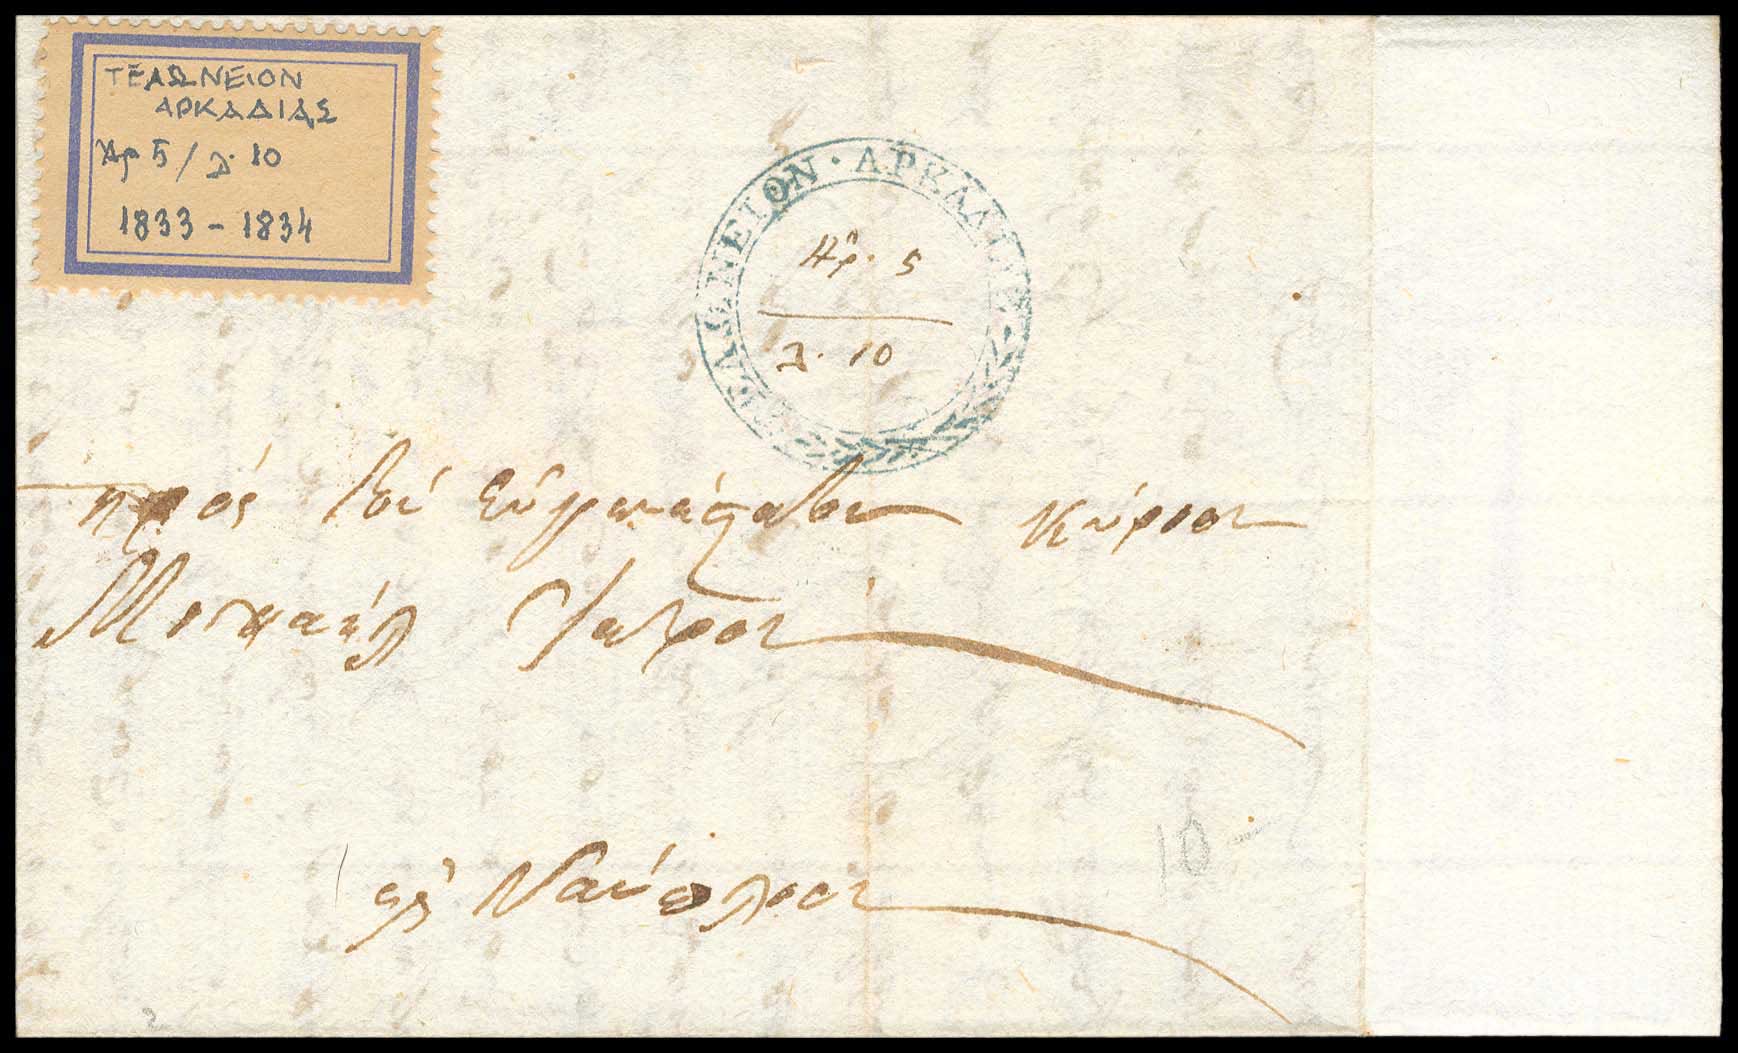 ΤΕΛΩΝΕΙΟΝ
ΑΡΚΑΔΙΑΣ
Αρ 5 / λ. 10
1833 - 1834
ΤΕΛΩΝΕΙΟΝ · ΑΡΚΑΔΙΑΣ
Αρ. 5
λ. 10
πρός τόν κύριον
Μιχαήλ Ἰατρόν
10
εἰς Ναύπλιον